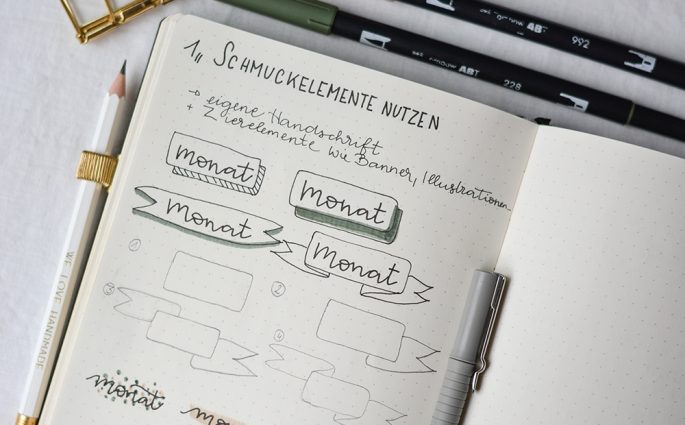 1,, SCHMUCKELEMENTE NUTZEN
→ eigene Handschrift
+ Zierelemente wie Banner, Illustrationen
monat
monat
monat
monat
1
2
3
4
monat
mo
WE LOVE HANDMADE
ABT
992
ABT
228